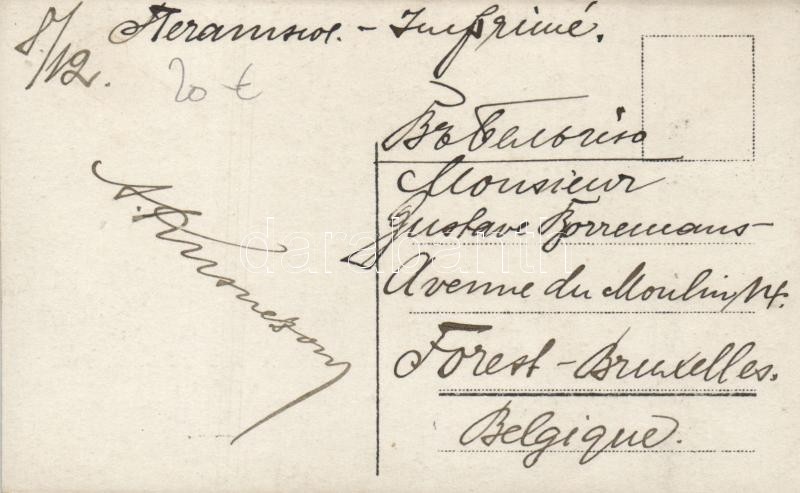 8/12.
Печатное. - Imprimé.
20 €
Въ Бельгiю
Monsieur
Gustave Borremans
Avenue du Moulin 14.
Forest - Bruxelles.
Belgique.
darabanth